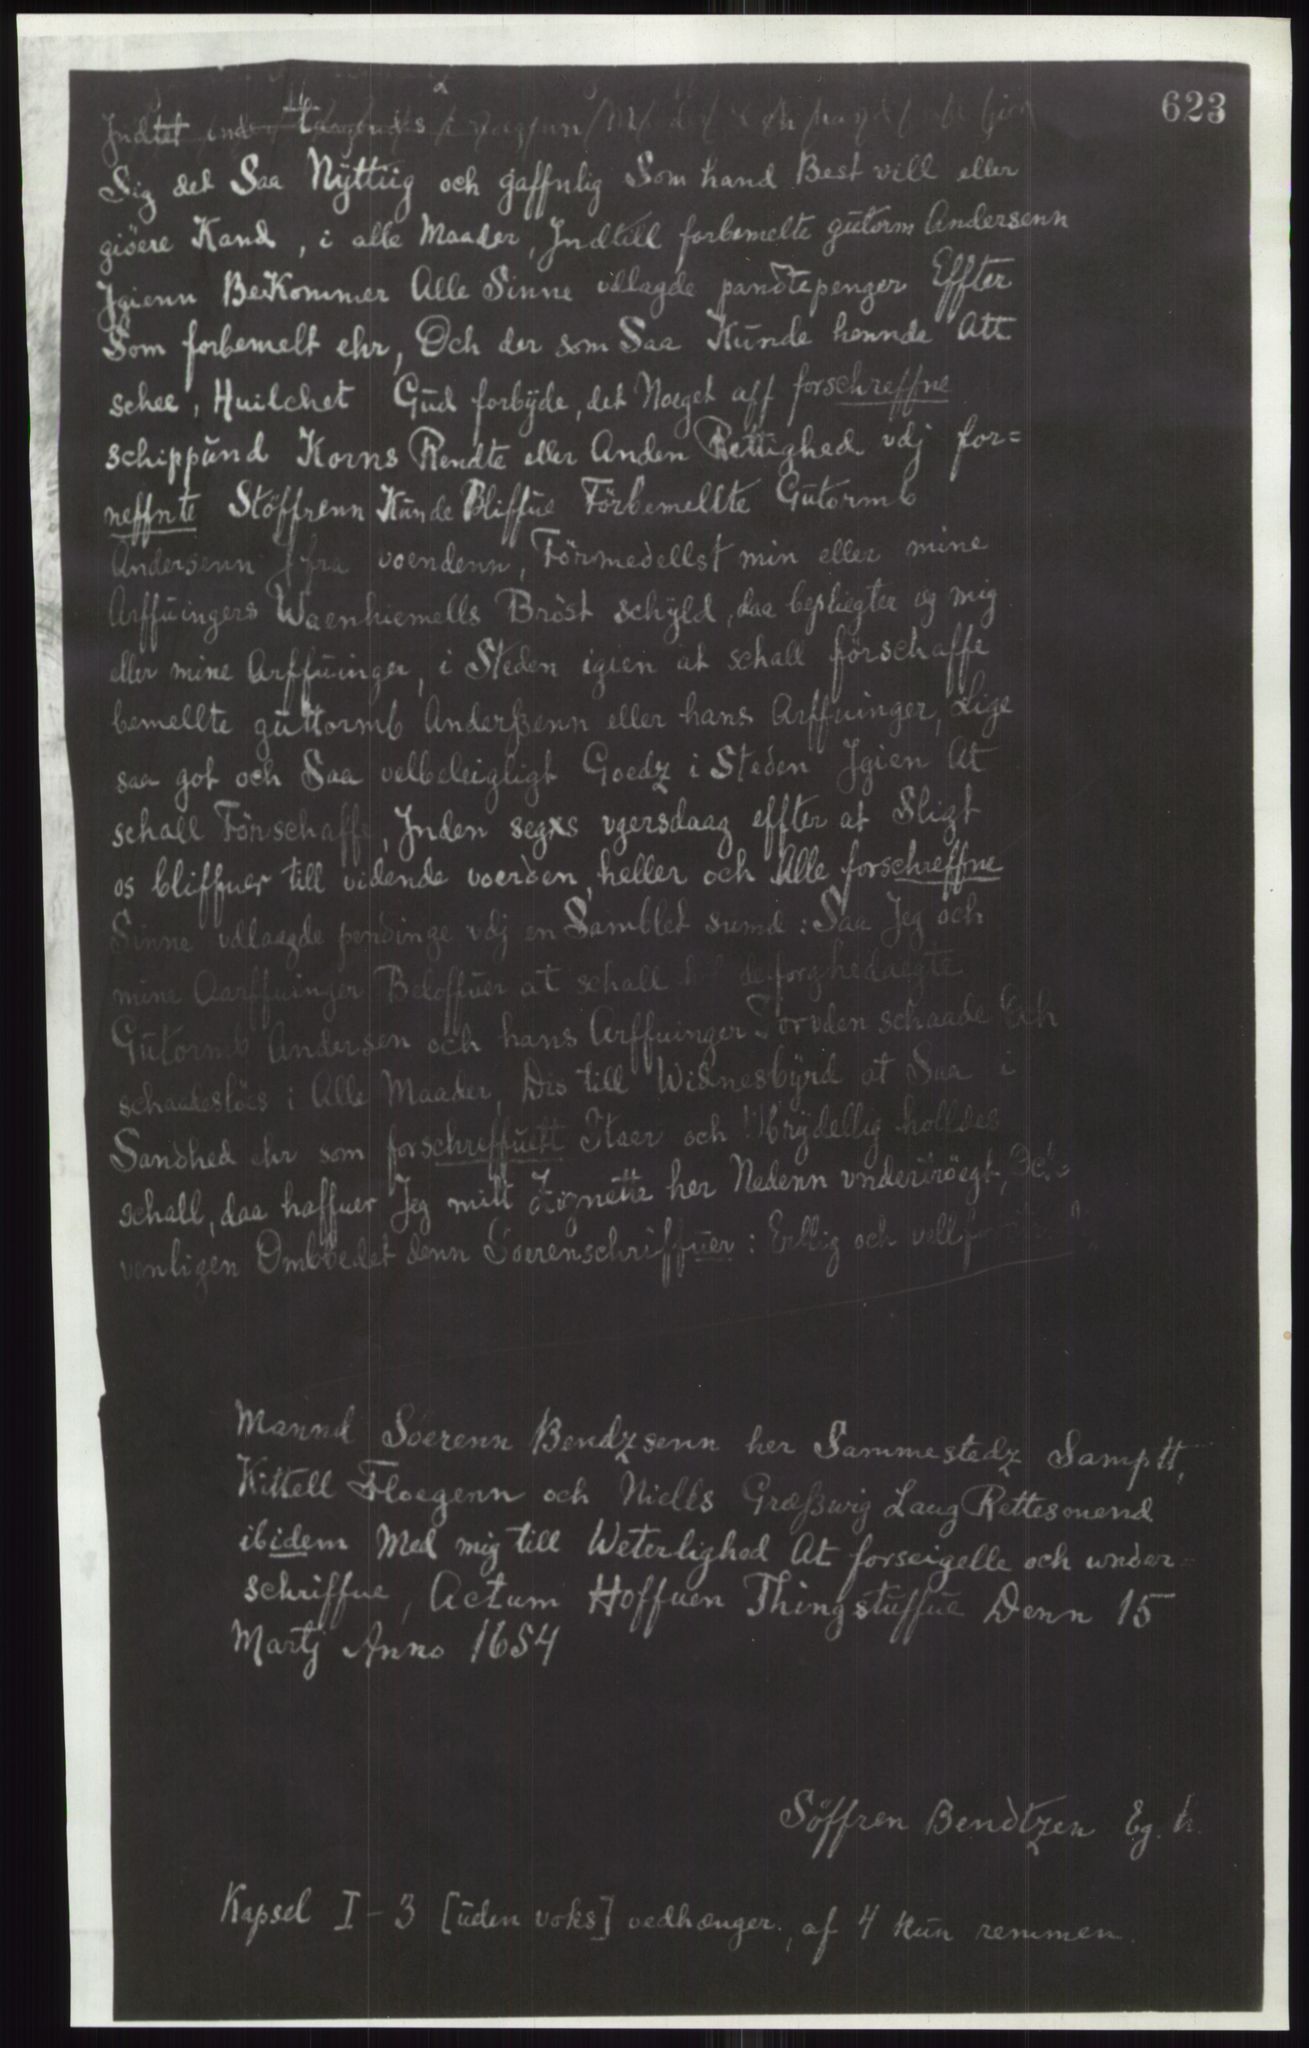 623
Sig det Saa Nÿttiig och gaffnlig Som hand Best vill eller
giöere Kand, i alle Maader, Indtill forbemelte gutorm Andersenn
Igienn BeKommer Alle Sinne udlagde pandtepenger Effter
Som forbemelt ehr, Och der som Saa Kunde hennde Att
schee, Huilchet Gud forbÿde, det Noeget aff forschreffne
schippund Korns Rendte eller Anden Rettighed vdj for=
neffnte Stöffrenn Kunde Bliffue Förbemellte Gutormb
Andersenn fra voendenn, Förmedellst min eller mine
Arffuingers Waenhiemells Bröst schÿld, daa bepliegter og mig
eller mine Arffuinger, i Steden igien at schall förschaffe
bemellte guttormb Anderßenn eller hans Arffuinger, Lige
saa got och Saa velbeleigligt Goedz i Steden Igien At
schall Förschaffe, Inden segxs vgersdaag effter at Sligt
os bliffuer till vidende voerden, heller och Alle forschreffne
Sinne vdlaagde pendinge vdj en Samblet sumd: Saa Jeg och
mine Aarffuinger Beloffuer at schall de forghedaegte
Gutormb Andersen och hans Arffuinger Forvden schaade Och
schaadeslöes i Alle Maader, Dis till Widnesbÿrd at Saa i
Sandhed ehr som forschreffuett Staer och Vbrÿdellig holldes
schall, daa haffuer Jeg mitt Zignette her Nedenn vndertröegt,
venligen Ombbedet denn Soerenschriffuer: Erllig och vell
Mannd Söerenn Bendzsenn her Sammestedz Samptt,
Kittell Floegenn och Niells Græßwig Laug Rettesmend
ibidem Med mig till Weterlighed At forseigelle och under=
schriffue, Actum Hoffuen Thingstuffue Denn 15
Martj Anno 1654
Söffren Bendtzen Eg. h.
Kapsel I-3 [uden voks] vedhænger, af 4 Kun remmen.